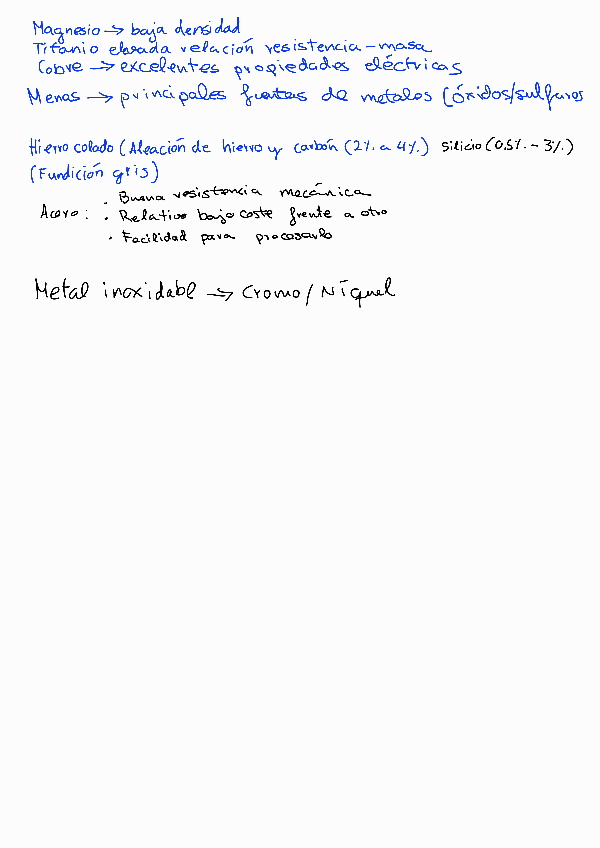 Magnesio → baja densidad
Titanio elevada relación resistencia-masa
Cobre → excelentes propiedades eléctricas
Menas → principales fuentes de metales (óxidos/sulfuros
Hierro colado (Aleación de hierro y carbón (2% a 4%) Silicio (0.5% - 3%)
(Fundición gris)
· Buena resistencia mecánica
Acero: · Relativo bajo coste frente a otro
· Facilidad para procesarlo
Metal inoxidabl → Cromo/Níquel